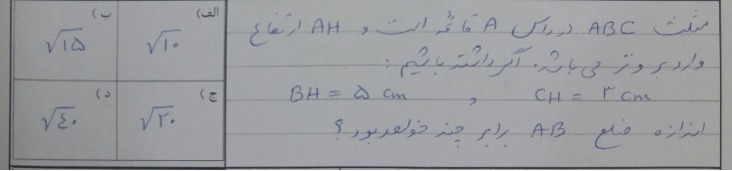 مثلث ABC در رأس A قائمه است و AH ارتفاع
وارد بر وتر می باشد. اگر داشته باشیم :
CH = ۳ cm , BH = ۵ cm
اندازه ضلع AB برابر چند خواهد بود ؟
الف) √۱۰
ب) √۱۵
ج) √۲۰
د) √٤۰